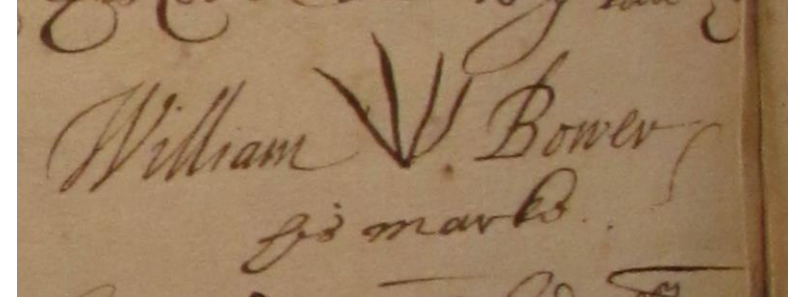 William Bower
his marke